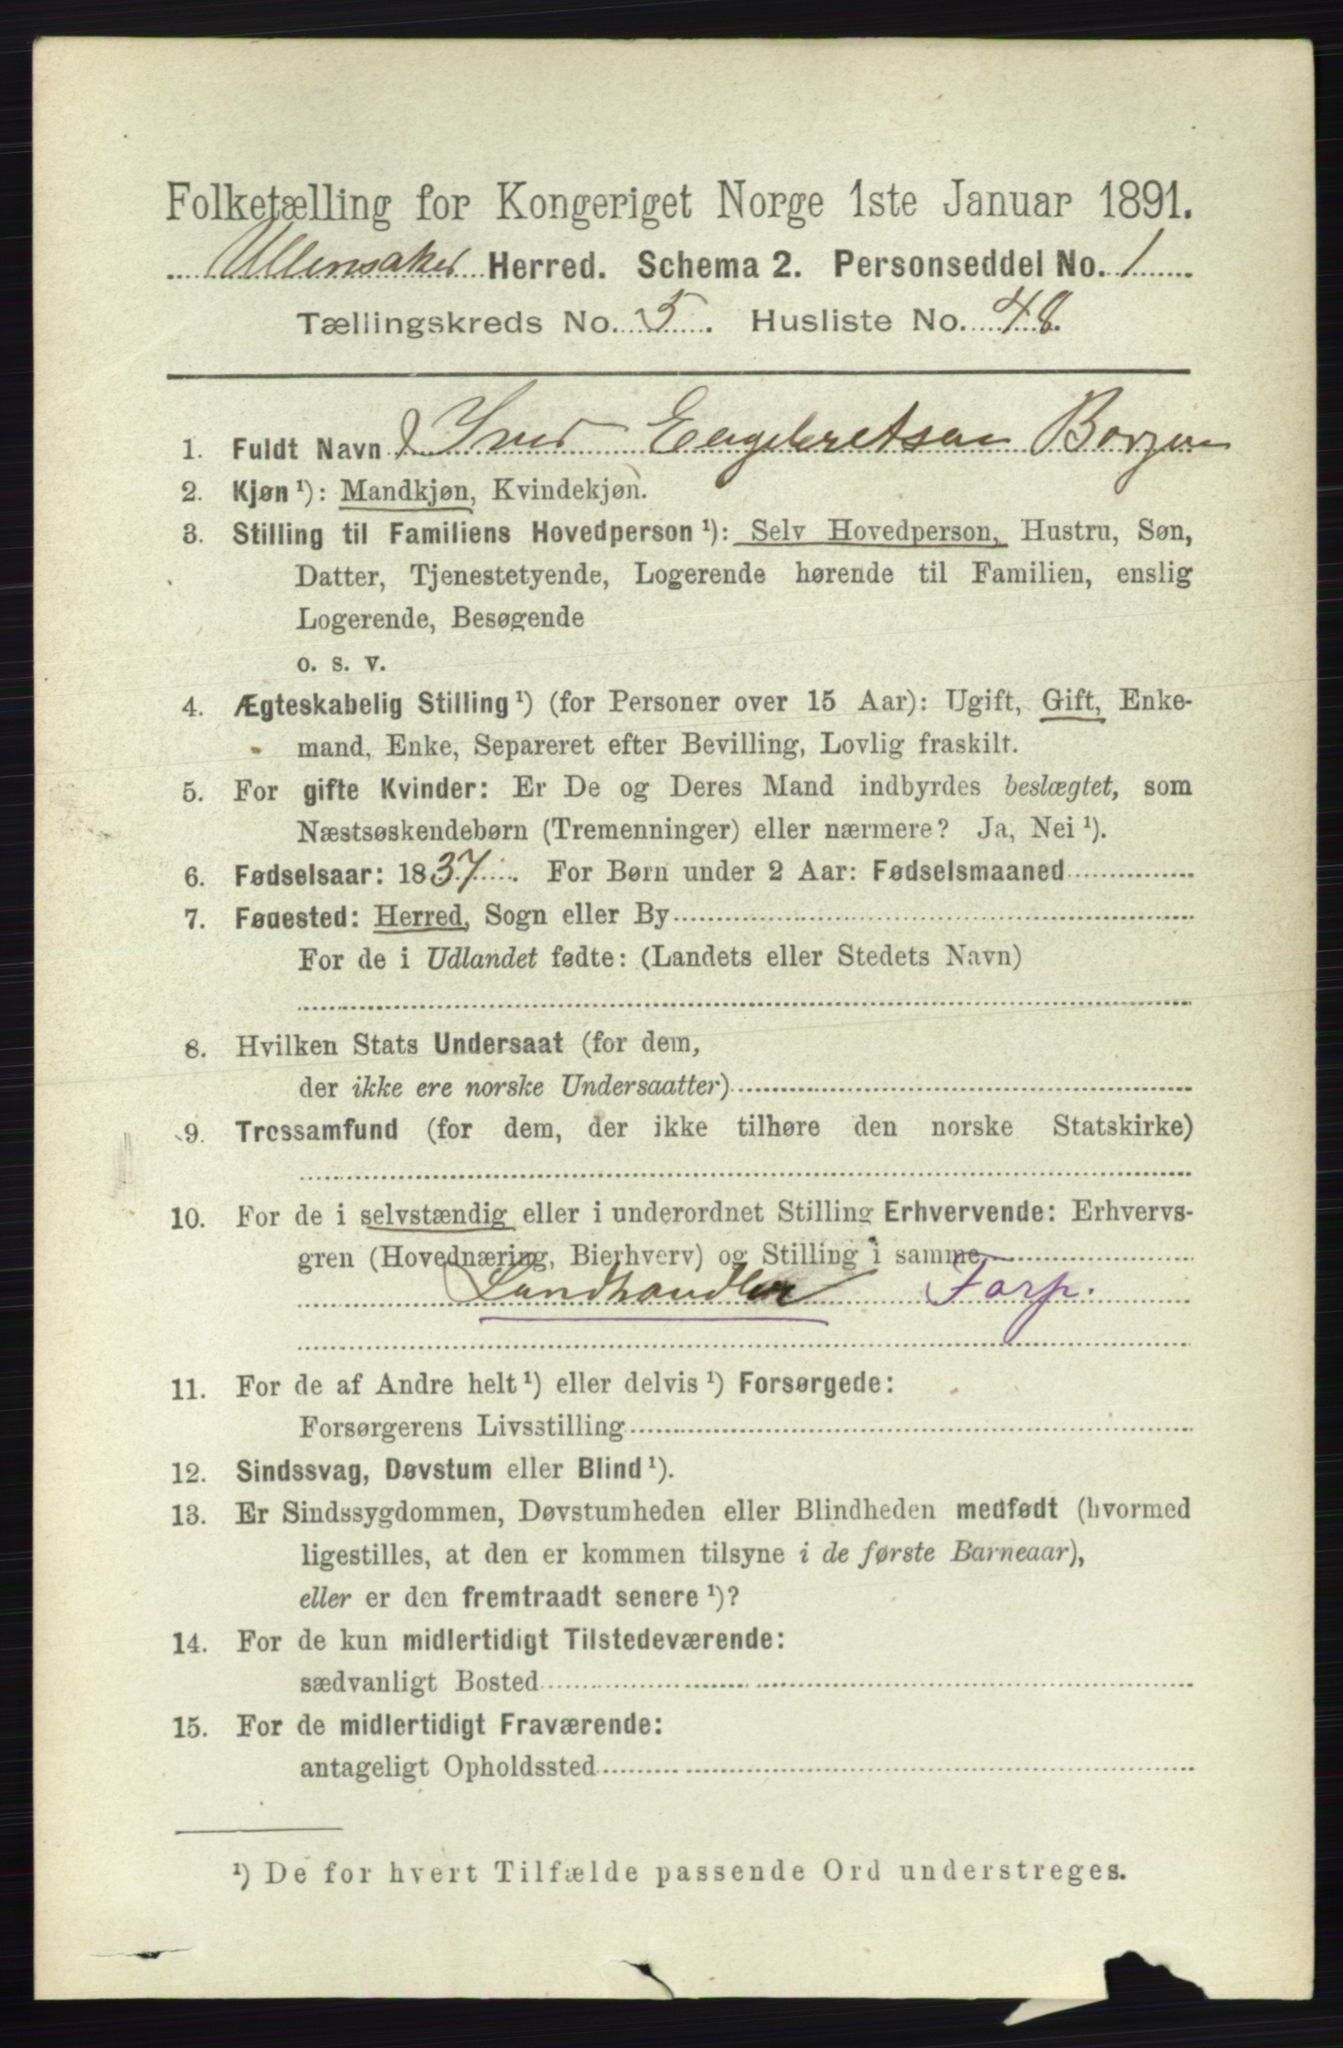 Folketælling for Kongeriget Norge 1ste Januar 1891.
Ullensaker Herred. Schema 2. Personseddel No. 1
Tællingskreds No. 5. Husliste No. 48.
1. Fuldt Navn Iver Engebretsen Borgen
2. Kjøn ¹): Mandkjøn, Kvindekjøn.
3. Stilling til Familiens Hovedperson ¹): Selv Hovedperson, Hustru, Søn,
Datter, Tjenestetyende, Logerende hørende til Familien, enslig
Logerende, Besøgende
o. s. v.
4. Ægteskabelig Stilling ¹) (for Personer over 15 Aar): Ugift, Gift, Enke-
mand, Enke, Separeret efter Bevilling, Lovlig fraskilt.
5. For gifte Kvinder: Er De og Deres Mand indbyrdes beslægtet, som
Næstsøskendebørn (Tremenninger) eller nærmere? Ja, Nei ¹).
6. Fødselsaar: 1837. For Børn under 2 Aar: Fødselsmaaned
7. Fødested: Herred, Sogn eller By
For de i Udlandet fødte: (Landets eller Stedets Navn)
8. Hvilken Stats Undersaat (for dem,
der ikke ere norske Undersaatter)
9. Trossamfund (for dem, der ikke tilhøre den norske Statskirke)
10. For de i selvstændig eller i underordnet Stilling Erhvervende: Erhvervs-
gren (Hovednæring, Bierhverv) og Stilling i samme
Landhandler Forp.
11. For de af Andre helt ¹) eller delvis ¹) Forsørgede:
Forsørgerens Livsstilling
12. Sindssvag, Døvstum eller Blind ¹).
13. Er Sindssygdommen, Døvstumheden eller Blindheden medfødt (hvormed
ligestilles, at den er kommen tilsyne i de første Barneaar),
eller er den fremtraadt senere ¹)?
14. For de kun midlertidigt Tilstedeværende:
sædvanligt Bosted
15. For de midlertidigt Fraværende:
antageligt Opholdssted
¹) De for hvert Tilfælde passende Ord understreges.